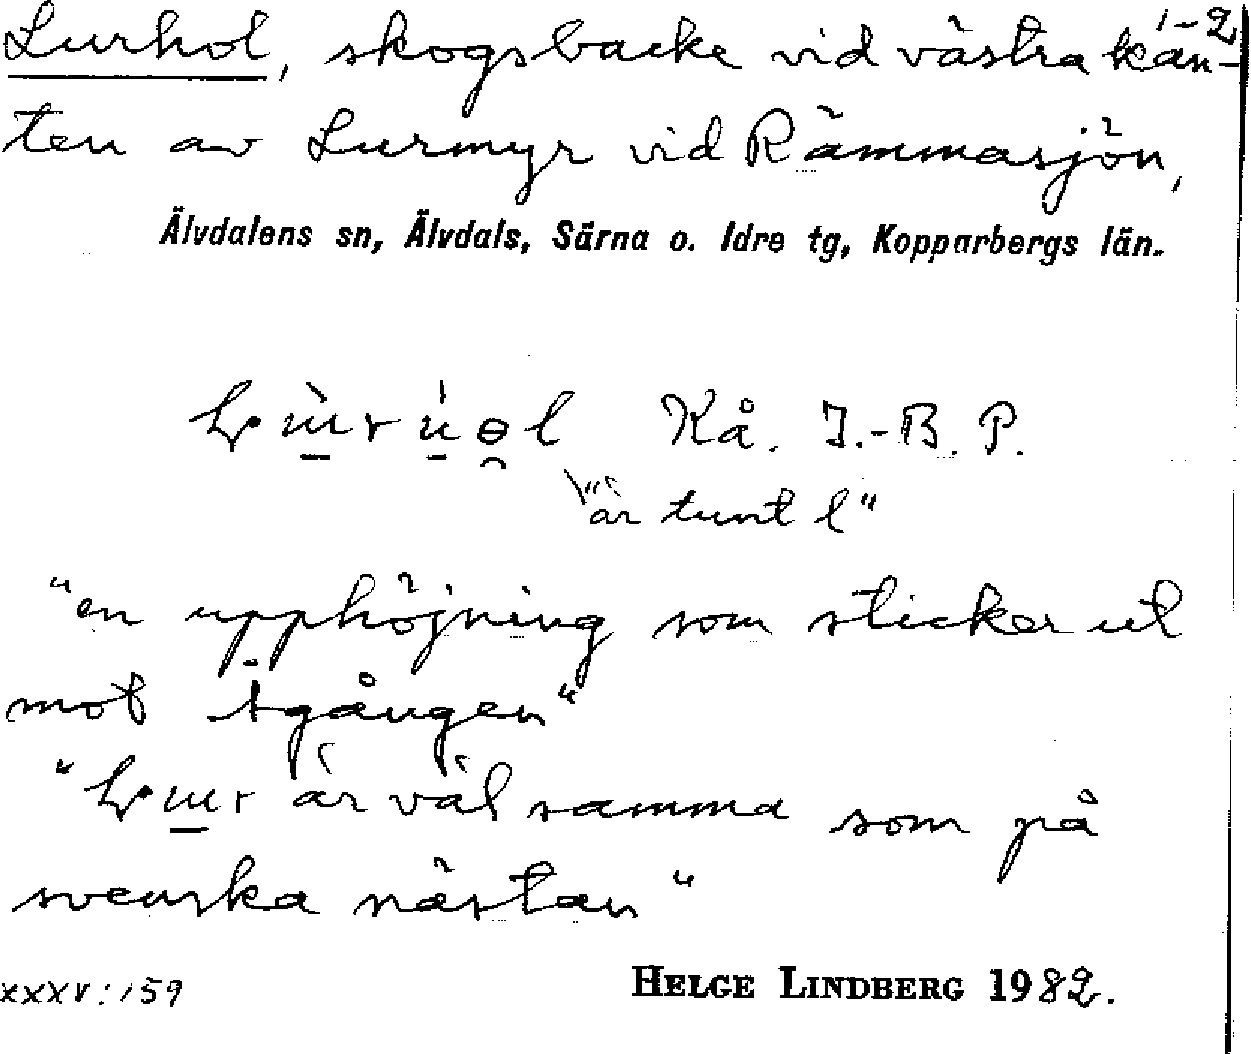 1-2
Lurhol, skogsbacke vid västra kan-
ten av Lurmyr vid Rämmasjön,
Älvdalens sn, Älvdals, Särna o. Idre tg, Kopparbergs län.
Kå. J.-B. P.
"är tunt l"
"en upphöjning som sticker ut
mot tgången"
är väl samma som på
svenska nästan"
XXXV:159
HELGE LINDBERG 1982.